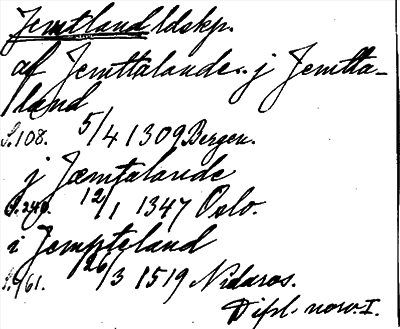 Jemtland ldskp.
af Jemttalande. j Jemtta-
land
S.108. 5/4 1309 Bergen.
j Jæmtalande
S.240. 12/1 1347 Oslo.
i Jempteland
S.761. 26/3 1519 Nidaros.
Dipl. norv. I.